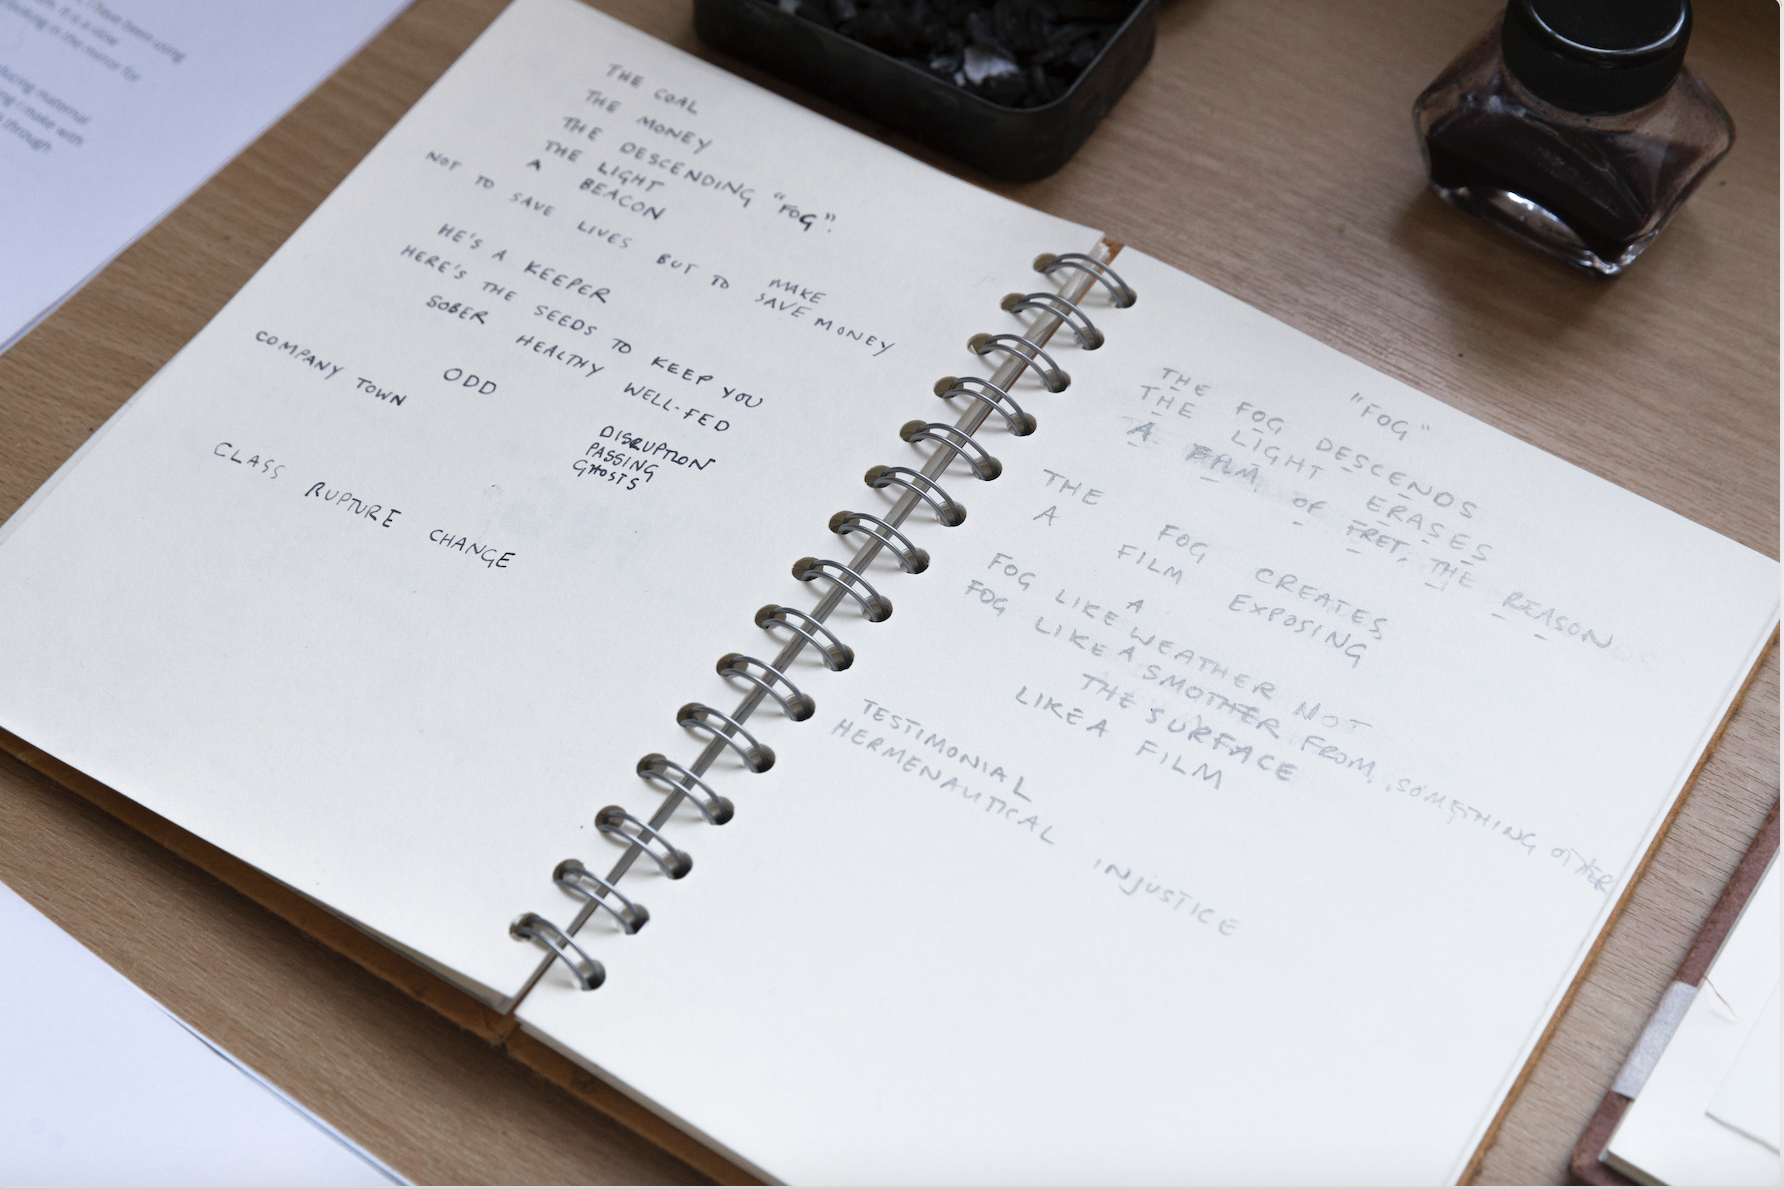 have been using
it is a slow
looking in the mirror for
maternal
I make with
through
THE COAL
THE MONEY
THE DESCENDING "FOG".
THE LIGHT
A BEACON
NOT TO SAVE LIVES BUT TO MAKE
SAVE MONEY
HE'S A KEEPER
HERE'S THE SEEDS TO KEEP YOU
SOBER HEALTHY WELL-FED
COMPANY TOWN ODD
DISRUPTION
PASSING
GHOSTS
CLASS RUPTURE CHANGE
"FOG"
THE FOG DESCENDS
THE LIGHT ERASES
A FILM OF FRET, THE REASON
THE FOG CREATES
A FILM EXPOSING
FOG LIKE A WEATHER NOT
FOG LIKE A SMOTHER FROM SOMETHING OTHER
THE SURFACE
LIKE A FILM
TESTIMONIAL
HERMENAUTICAL INJUSTICE